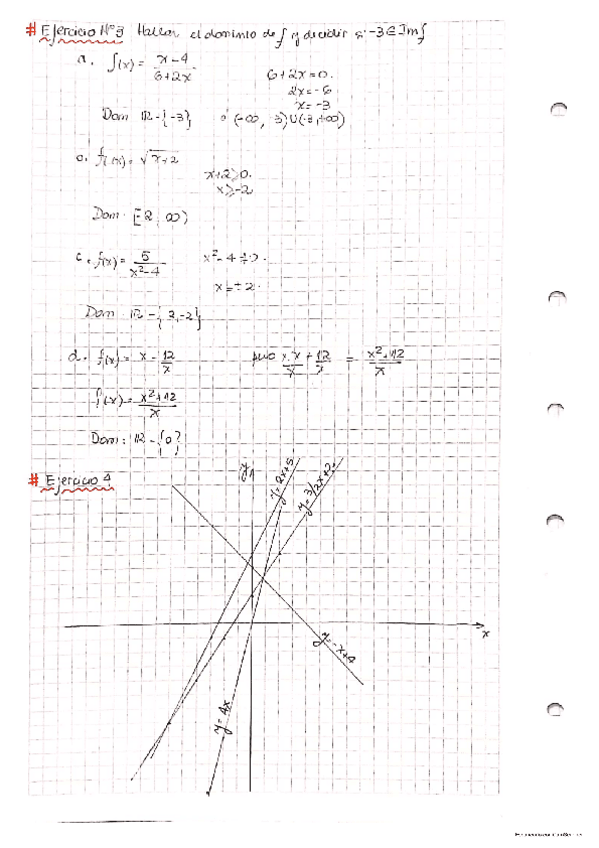 # Ejercicio Nº3 Hallar el dominio de f y decidir si -3 ∈ Im f
a. f(x) = x-4 / 6+2x
6+2x=0.
2x=-6
x=-3
Dom: IR-{-3} ó (-∞, -3)U(-3,+∞)
f(x) = √x+2
x+2≥0.
x≥-2
Dom: [-2, ∞)
c. f(x) = 5 / x²-4
x²-4≠0.
x=±2.
Dom: IR-{2,-2}
d. f(x) = x - 12/x
x.x/x + 12/x = x²+12/x
f(x) = x²+12 / x
Dom: IR-{0}
# Ejercicio 4
y
y=2x+5
y=3/2x+2
x
y=-x+4
y=4x